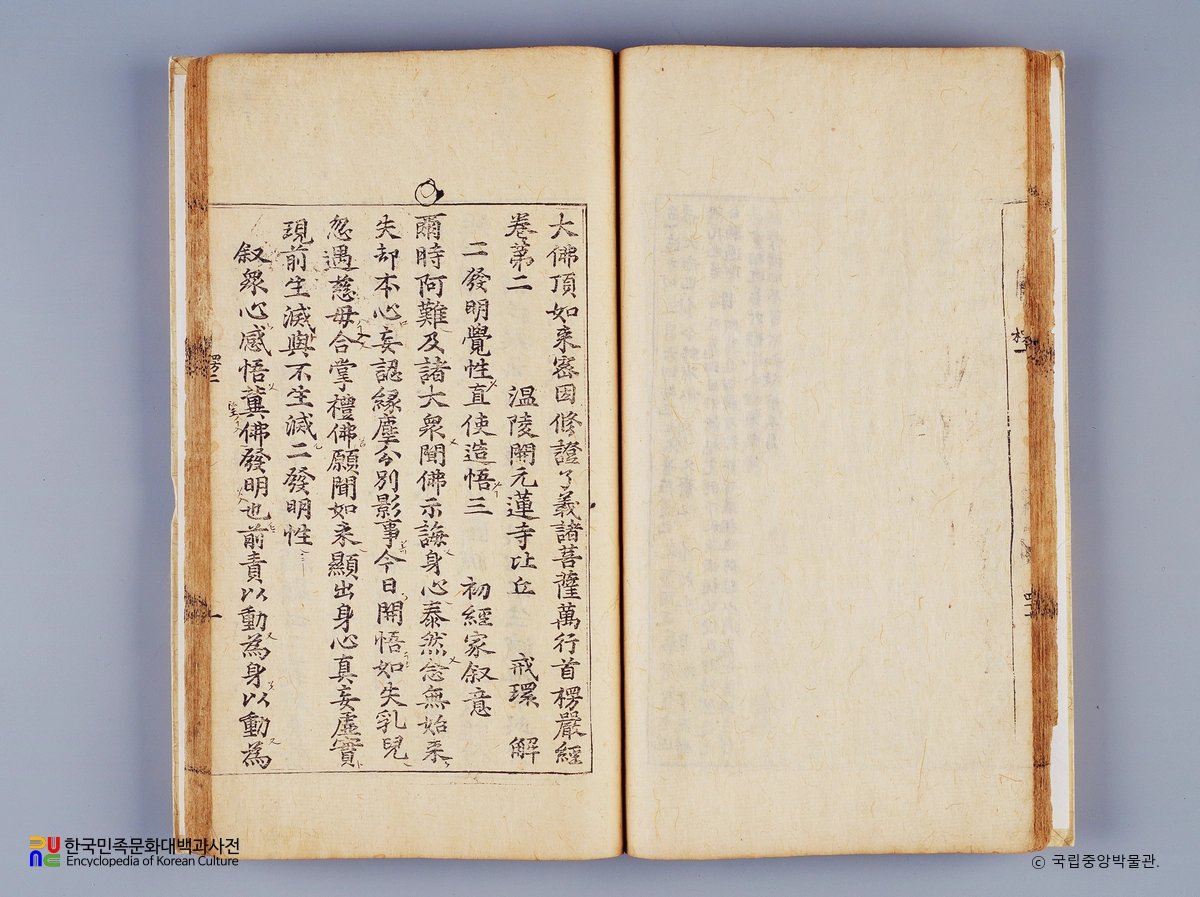 大佛頂如来密因修證了義諸菩薩萬行首楞嚴經
卷第二 温陵開元蓮寺比丘 戒環 解
二發明覺性直使造悟三 初經家叙意
爾時阿難及諸大衆聞佛示誨身心泰然念無始来
失却本心妄認緣塵分别影事今日開悟如失乳兒
忽遇慈母合掌禮佛願聞如来顯出身心真妄虛實
現前生滅與不生滅二發明性
叙衆心感悟冀佛發明也前責以動為身以動為
楞二
一
한국민족문화대백과사전
Encyclopedia of Korean Culture
ⓒ 국립중앙박물관.